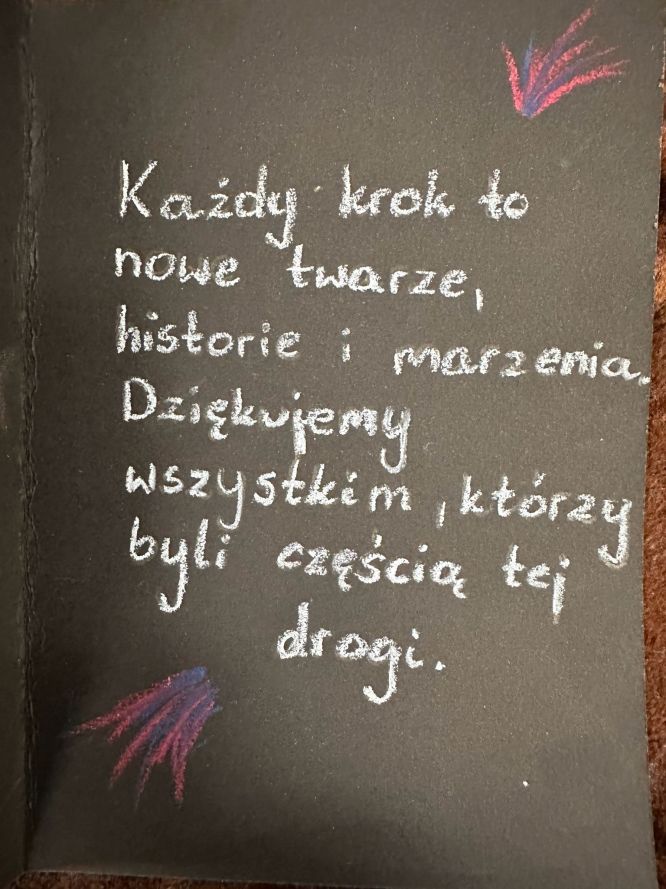 Każdy krok to
nowe twarze,
historie i marzenia.
Dziękujemy
wszystkim, którzy
byli częścią tej
drogi.